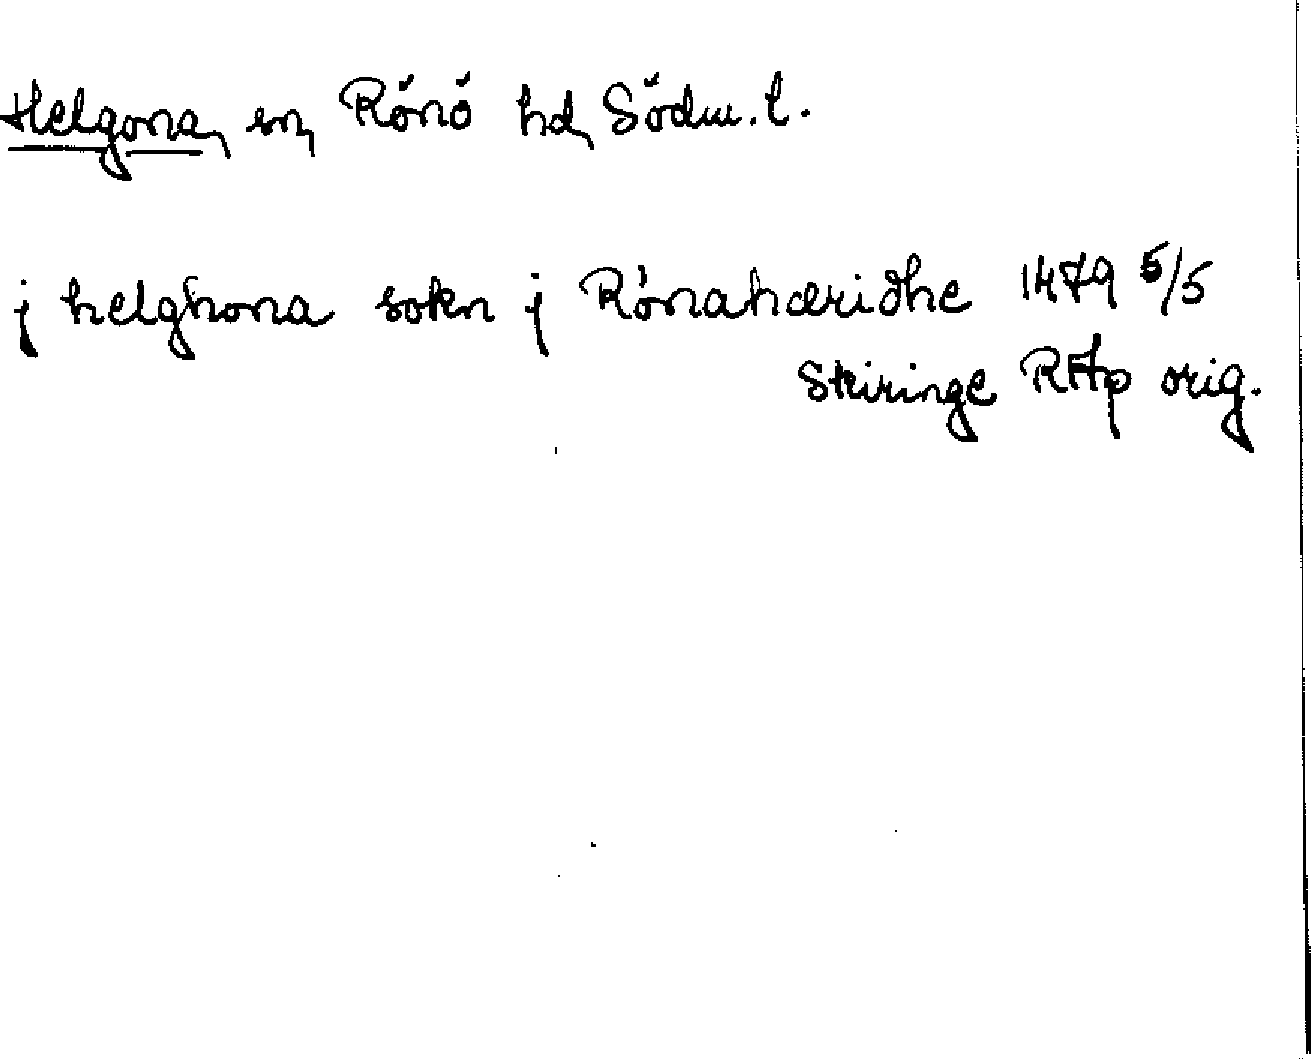 Helgona, sn, Rönö hd, Södm. l.
j helghona sokn j Rönahæridhe 1479 5/5
Skiringe RAp orig.